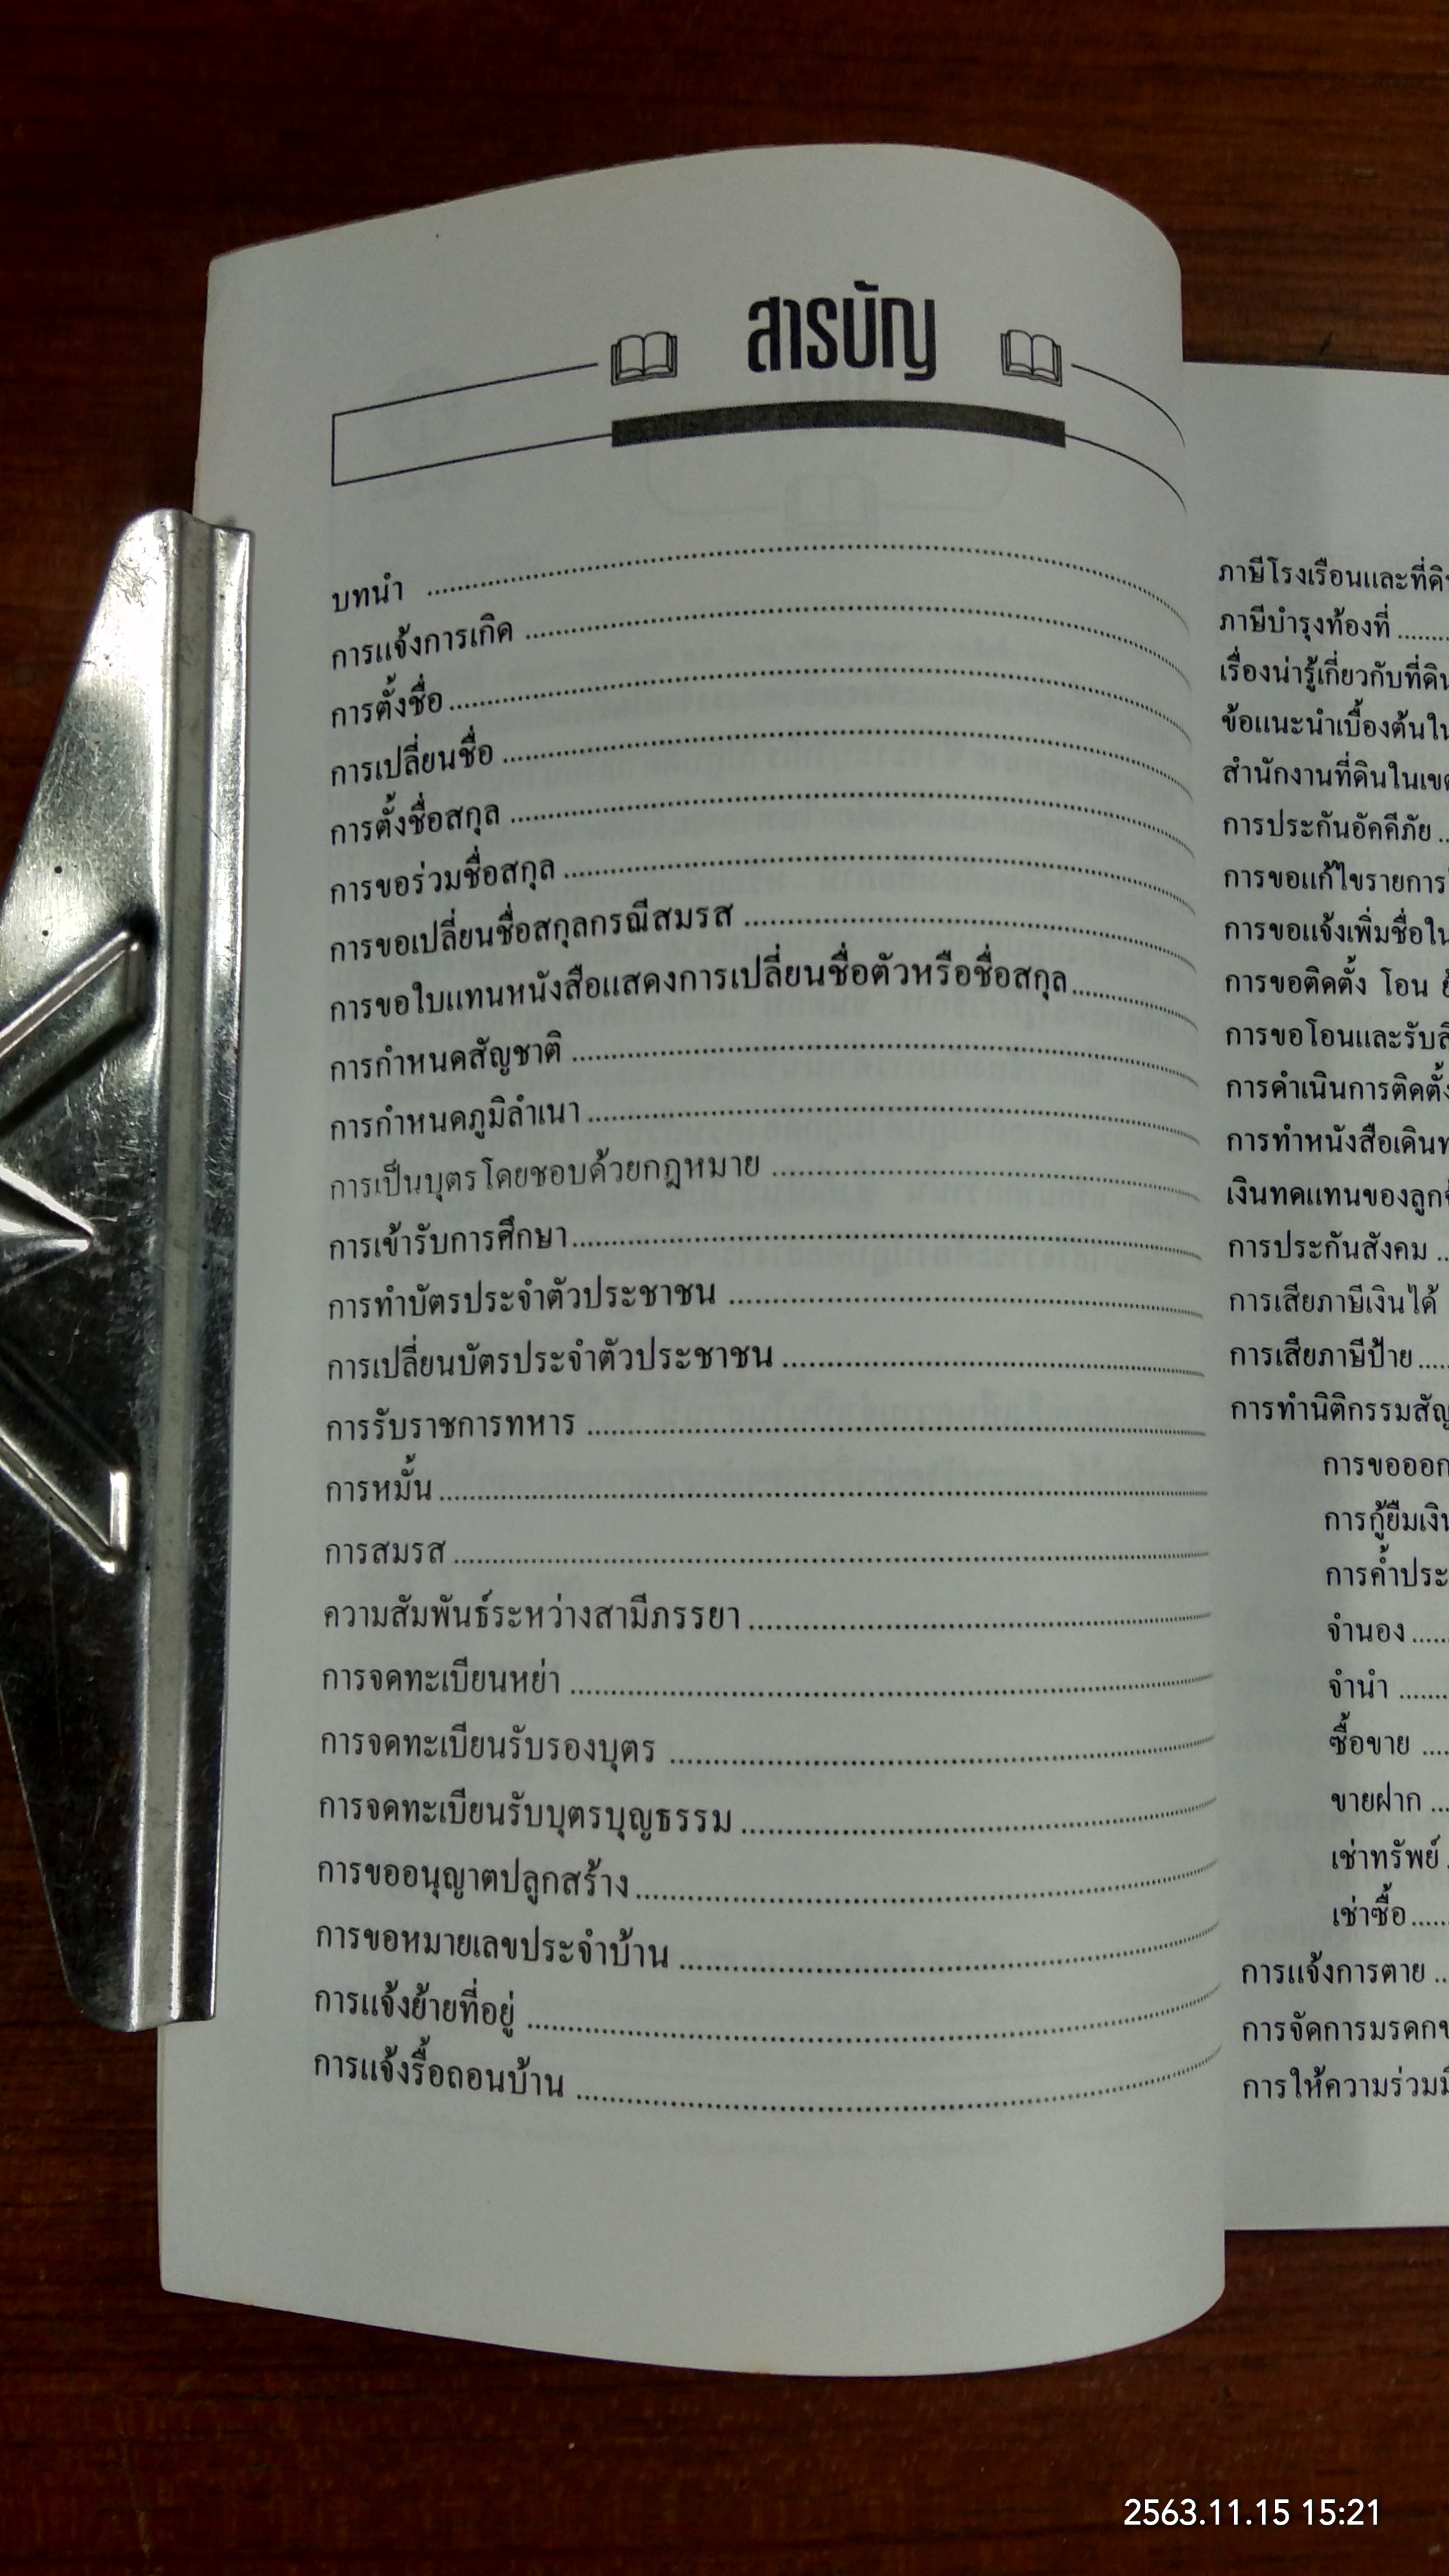 สารบัญ
บทนำ
การแจ้งการเกิด
การตั้งชื่อ
การเปลี่ยนชื่อ
การตั้งชื่อสกุล
การขอร่วมชื่อสกุล
การขอเปลี่ยนชื่อสกุลกรณีสมรส
การขอใบแทนหนังสือแสดงการเปลี่ยนชื่อตัวหรือชื่อสกุล
การกำหนดสัญชาติ
การกำหนดภูมิลำเนา
การเป็นบุตรโดยชอบด้วยกฎหมาย
การเข้ารับการศึกษา
การทำบัตรประจำตัวประชาชน
การเปลี่ยนบัตรประจำตัวประชาชน
การรับราชการทหาร
การหมั้น
การสมรส
ความสัมพันธ์ระหว่างสามีภรรยา
การจดทะเบียนหย่า
การจดทะเบียนรับรองบุตร
การจดทะเบียนรับบุตรบุญธรรม
การขออนุญาตปลูกสร้าง
การขอหมายเลขประจำบ้าน
การแจ้งย้ายที่อยู่
การแจ้งรื้อถอนบ้าน
ภาษีโรงเรือนและที่ดิน
ภาษีบำรุงท้องที่
เรื่องน่ารู้เกี่ยวกับที่ดิน
ข้อแนะนำเบื้องต้นใน
สำนักงานที่ดินในเขต
การประกันอัคคีภัย
การขอแก้ไขรายการ
การขอแจ้งเพิ่มชื่อใน
การขอติดตั้ง โอน
การขอโอนและรับ
การดำเนินการติดตั้ง
การทำหนังสือเดิน
เงินทดแทนของลูก
การประกันสังคม
การเสียภาษีเงินได้
การเสียภาษีป้าย
การทำนิติกรรมสัญ
การขอออก
การกู้ยืมเงิน
การค้ำประ
จำนอง
จำนำ
ซื้อขาย
ขายฝาก
เช่าทรัพย์
เช่าซื้อ
การแจ้งการตาย
การจัดการมรดก
การให้ความร่วม
2563.11.15 15:21